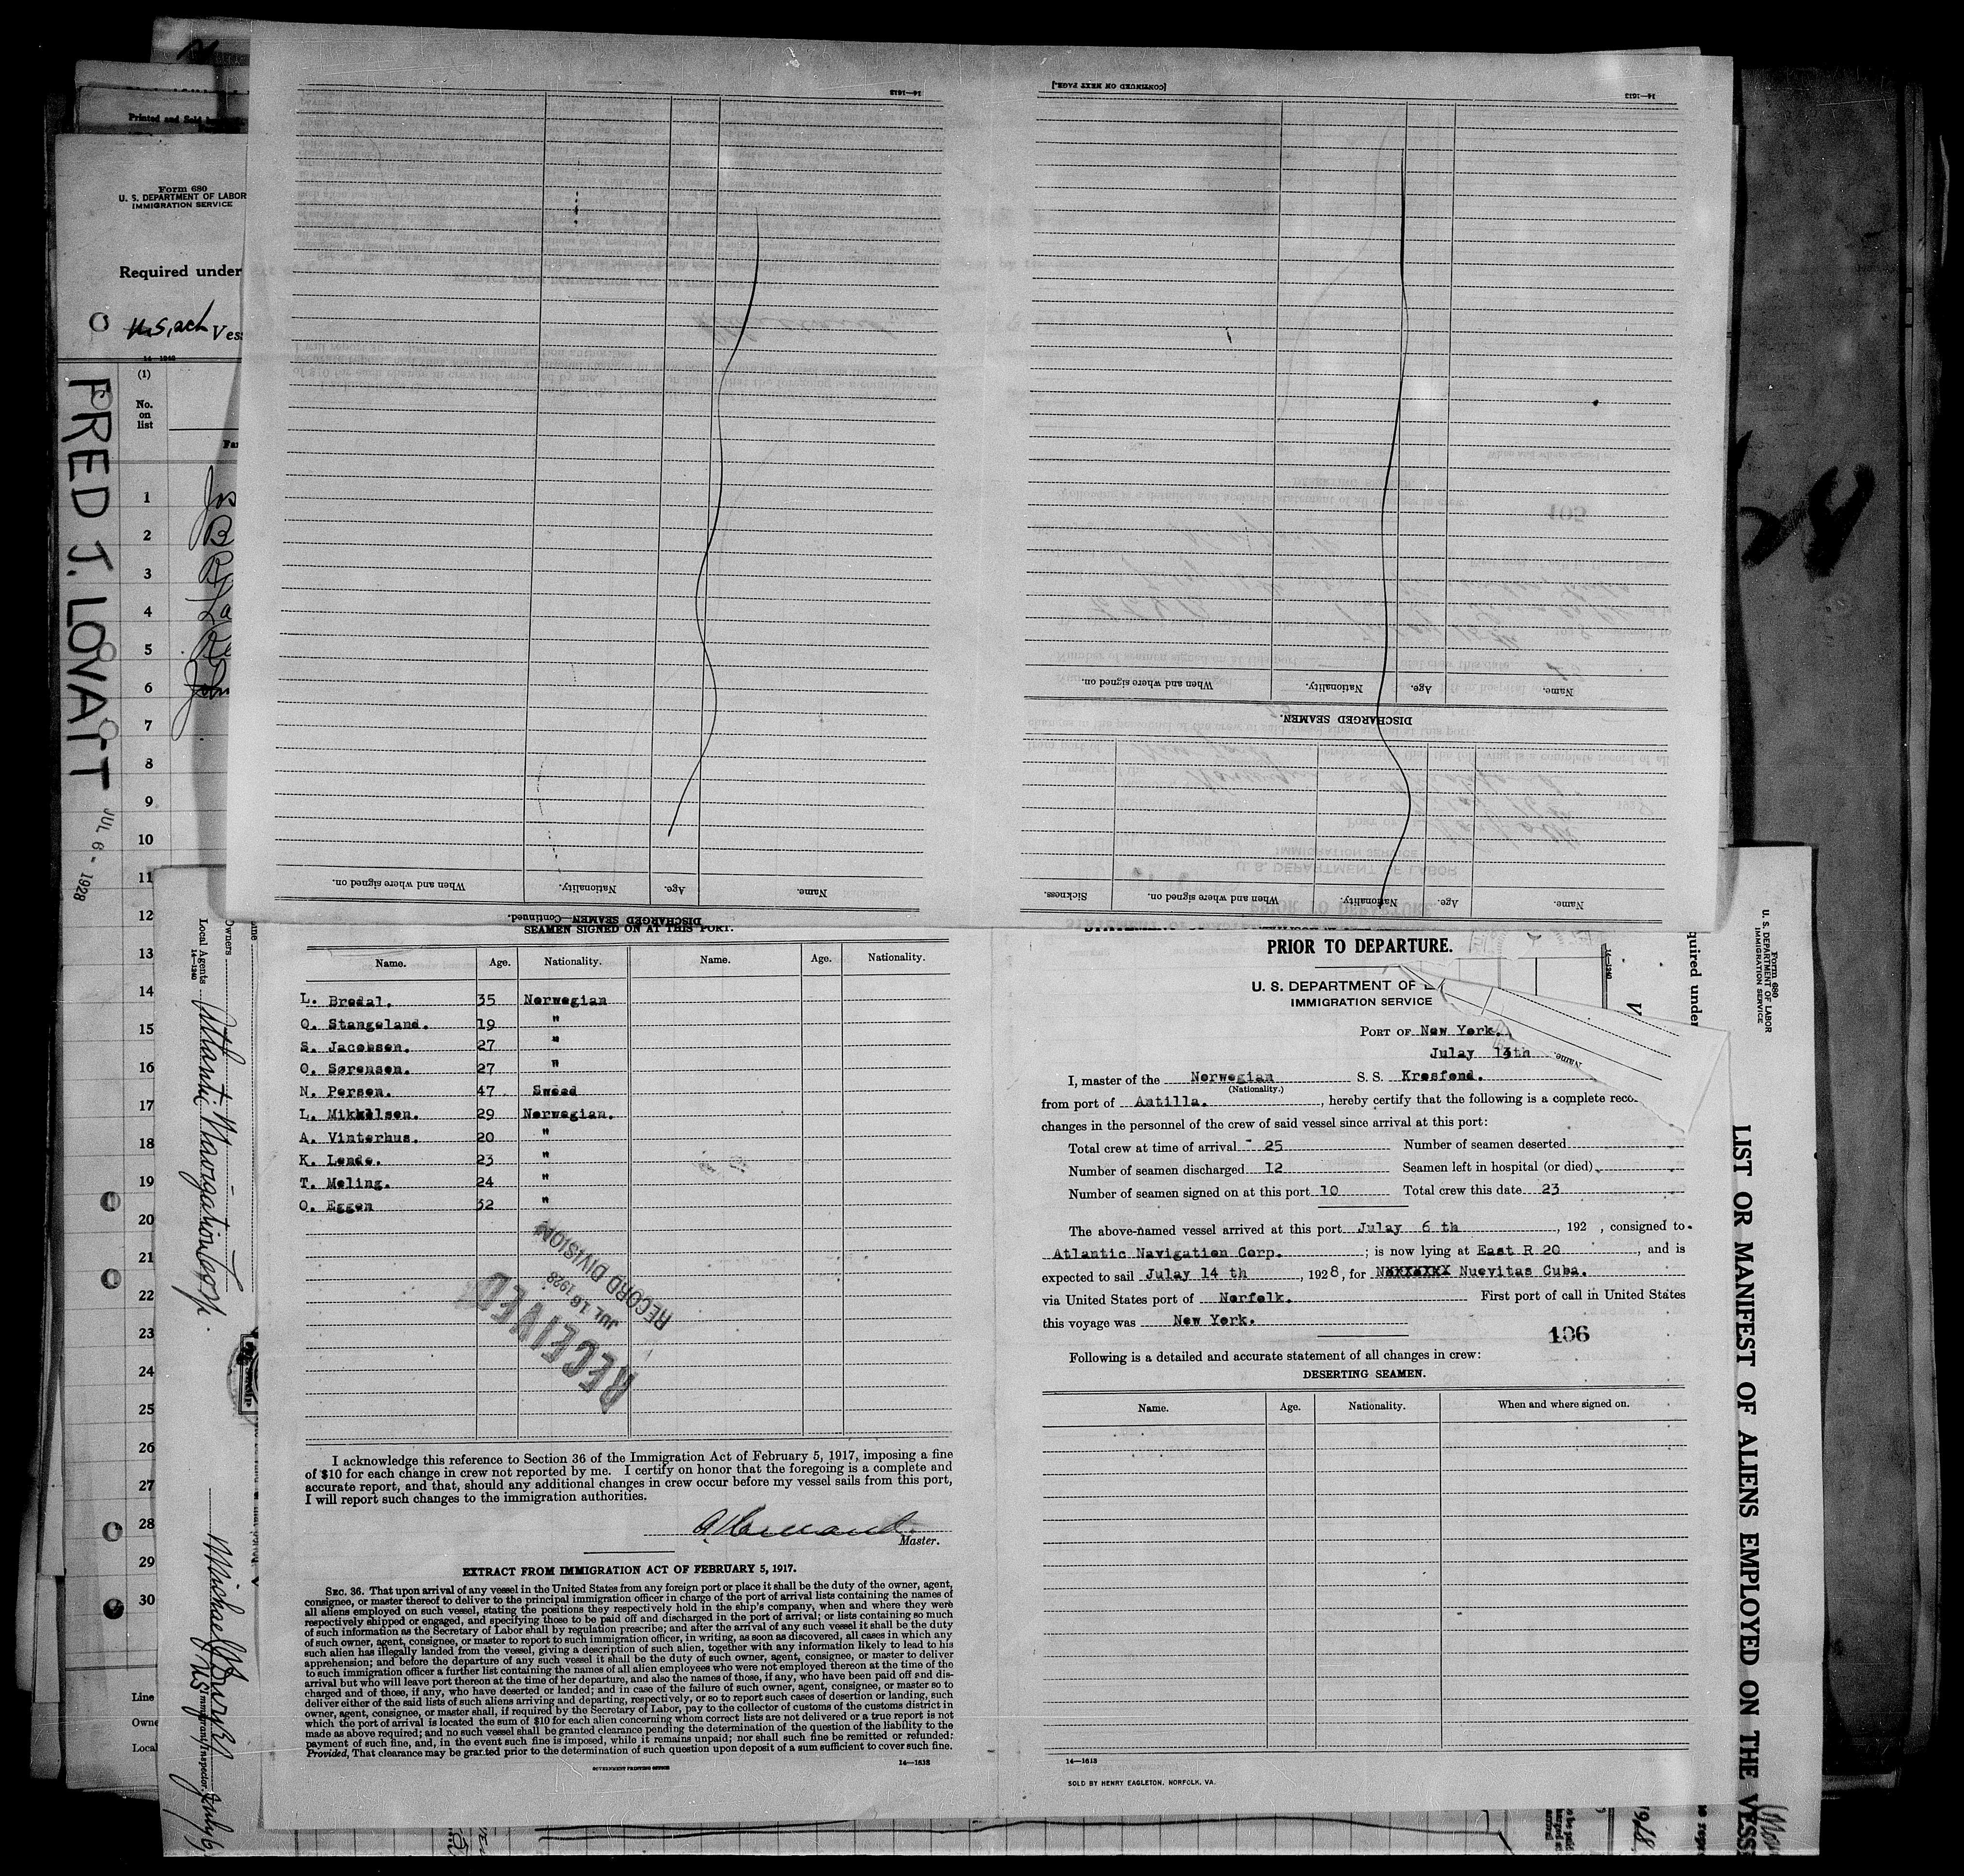 Printed and Sold by
Form 680
U. S. DEPARTMENT OF LABOR
IMMIGRATION SERVICE
Required under
14—1240
(1)
No.
on
list
1
2
3
4
5
6
7
8
9
10
11
12
13
14
15
16
17
18
19
20
21
22
23
24
25
26
27
28
29
30
Line
Owne
Local
FRED J. LOVATT
JUL 6 - 1928
Owners
Local Agents Atlantic Navigation Corp.
14—1240
Immigrant Inspector.
14—1613
[CONTINUED ON NEXT PAGE.]
14—1613
Name. Age. Nationality. When and where signed on.
DISCHARGED SEAMEN—Continued.
Name. Age. Nationality. When and where signed on.
DISCHARGED SEAMEN.
Name. Age. Nationality. When and where signed on. Sickness.
SEAMEN SIGNED ON AT THIS PORT.
Name. Age. Nationality. Name. Age. Nationality.
L. Bredal. 35 Norwegian
O. Stangeland. 19 "
S. Jacobsen. 27 "
O. Sørensen. 27 "
N. Persen. 47 Sweed
L. Mikkelsen. 29 Norwegian.
A. Vinterhus. 20 "
K. Lende. 23 "
T. Meling. 24 "
O. Eggen 32 "
RECEIVED
JUL 16 1928
RECORD DIVISION
I acknowledge this reference to Section 36 of the Immigration Act of February 5, 1917, imposing a fine
of $10 for each change in crew not reported by me. I certify on honor that the foregoing is a complete and
accurate report, and that, should any additional changes in crew occur before my vessel sails from this port,
I will report such changes to the immigration authorities.
Master.
EXTRACT FROM IMMIGRATION ACT OF FEBRUARY 5, 1917.
SEC. 36. That upon arrival of any vessel in the United States from any foreign port or place it shall be the duty of the owner, agent,
consignee, or master thereof to deliver to the principal immigration officer in charge of the port of arrival lists containing the names of
all aliens employed on such vessel, stating the positions they respectively hold in the ship's company, when and where they were
respectively shipped or engaged, and specifying those to be paid off and discharged in the port of arrival; or lists containing so much
of such information as the Secretary of Labor shall by regulation prescribe; and after the arrival of any such vessel it shall be the duty
of such owner, agent, consignee, or master to report to such immigration officer, in writing, as soon as discovered, all cases in which any
such alien has illegally landed from the vessel, giving a description of such alien, together with any information likely to lead to his
apprehension; and before the departure of any such vessel it shall be the duty of such owner, agent, consignee, or master to deliver
to such immigration officer a further list containing the names of all alien employees who were not employed thereon at the time of the
arrival but who will leave port thereon at the time of her departure, and also the names of those, if any, who have been paid off and dis-
charged and of those, if any, who have deserted or landed; and in case of the failure of such owner, agent, consignee, or master so to
deliver either of the said lists of such aliens arriving and departing, respectively, or so to report such cases of desertion or landing, such
owner, agent, consignee, or master shall, if required by the Secretary of Labor, pay to the collector of customs of the customs district in
which the port of arrival is located the sum of $10 for each alien concerning whom correct lists are not delivered or a true report is not
made as above required; and no such vessel shall be granted clearance pending the determination of the question of the liability to the
payment of such fine, and, in the event such fine is imposed, while it remains unpaid; nor shall such fine be remitted or refunded:
Provided, That clearance may be granted prior to the determination of such question upon deposit of a sum sufficient to cover such fine.
GOVERNMENT PRINTING OFFICE
14—1613
PRIOR TO DEPARTURE.
U. S. DEPARTMENT OF
IMMIGRATION SERVICE
PORT OF New York.
Julay 13th
Name.
I, master of the Norwegian S. S. Kresfond.
(Nationality.)
from port of Antilla. , hereby certify that the following is a complete reco
changes in the personnel of the crew of said vessel since arrival at this port:
Total crew at time of arrival 25 Number of seamen deserted
Number of seamen discharged 12 Seamen left in hospital (or died)
Number of seamen signed on at this port 10 Total crew this date 23
The above-named vessel arrived at this port Julay 6 th , 192 , consigned to
Atlantic Navigation Corp. ; is now lying at East R 20 , and is
expected to sail Julay 14 th , 1928, for Nuevitas Cuba.
via United States port of Norfolk. First port of call in United States
this voyage was New York.
106
Following is a detailed and accurate statement of all changes in crew:
DESERTING SEAMEN.
Name. Age. Nationality. When and where signed on.
14—1613
SOLD BY HENRY EAGLETON, NORFOLK, VA.
Form 680
U. S. DEPARTMENT OF LABOR
IMMIGRATION SERVICE
quired under
14—1240
LIST OR MANIFEST OF ALIENS EMPLOYED ON THE VESS